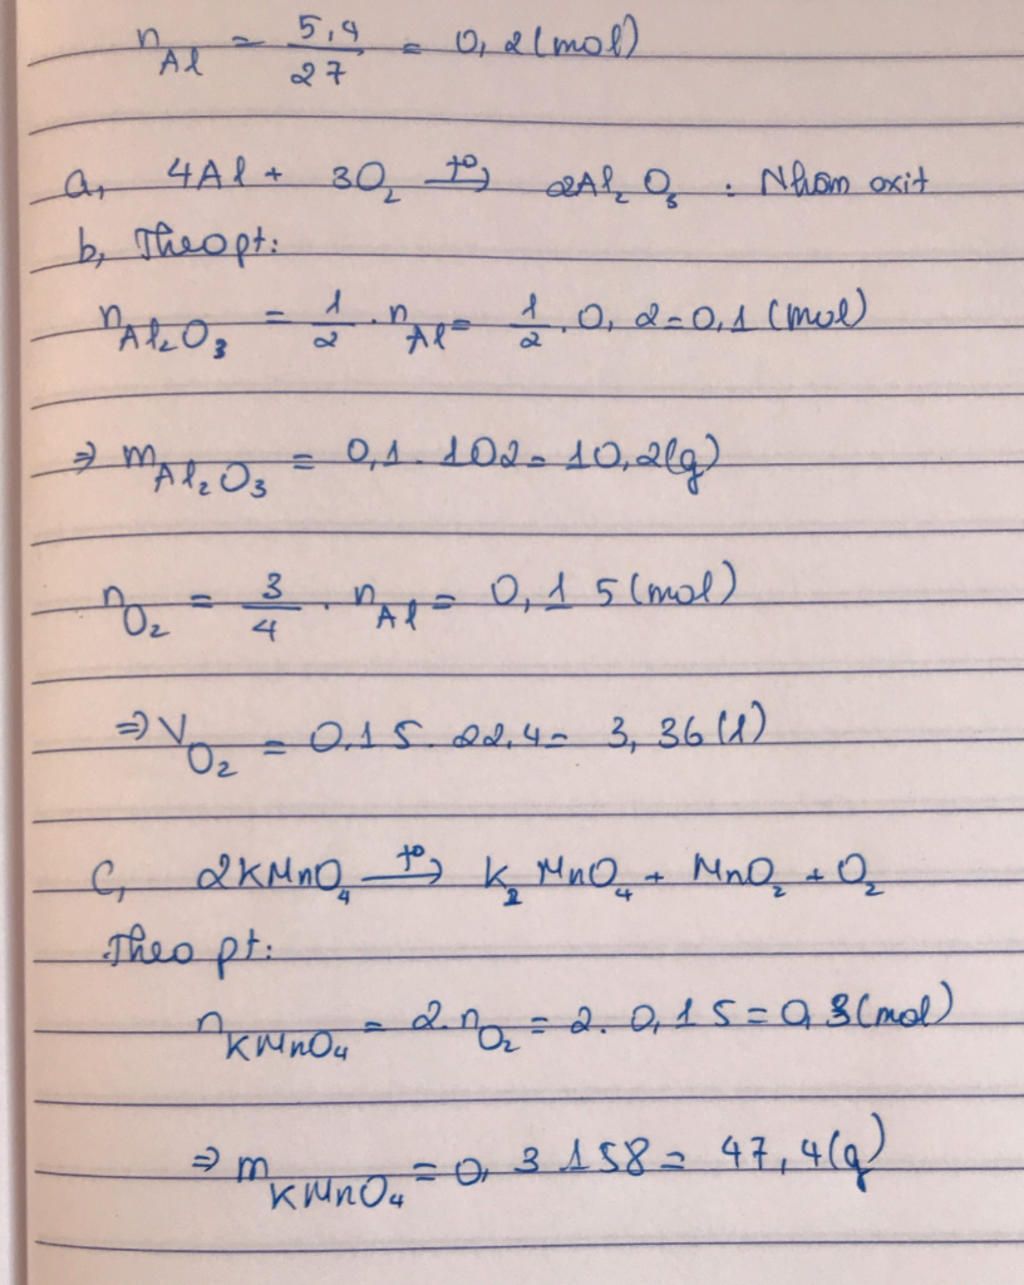 n_Al = 5,4/27 = 0,2 (mol)
a, 4Al + 3O₂ —t°→ 2Al₂O₃ : Nhôm oxit
b, Theo pt:
n_Al₂O₃ = 1/2 . n_Al = 1/2 . 0,2 = 0,1 (mol)
⇒ m_Al₂O₃ = 0,1 . 102 = 10,2 (g)
n_O₂ = 3/4 . n_Al = 0,15 (mol)
⇒ V_O₂ = 0.15 . 22,4 = 3,36 (l)
C, 2KMnO₄ —t°→ K₂MnO₄ + MnO₂ + O₂
Theo pt:
n_KMnO₄ = 2.n_O₂ = 2. 0,15 = 0,3 (mol)
⇒ m_KMnO₄ = 0,3 158 = 47,4 (g)